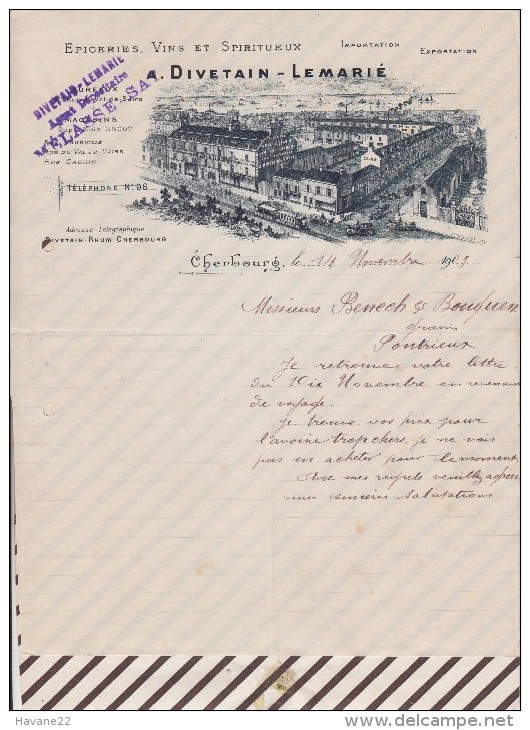 EPICERIES, VINS ET SPIRITUEUX
IMPORTATION
EXPORTATION
A. DIVETAIN - LEMARIÉ
DIVETAIN-LEMARIE
Agent Dépositaire
MAGASINS
RUE DU VAL DE SAIRE
RUE CACHIN
TÉLÉPHONE N° 96
Adresse Télégraphique
DIVETAIN-RHUM CHERBOURG
Cherbourg, le 14 Novembre 190
Messieurs Benech & Bouguen
grains
Pontrieux
Je retrouve votre lettre
du Dix Novembre en revenant
de voyage.
Je trouve vos prix pour
l'avoine trop chers, je ne vais
pas en acheter pour le moment.
Avec mes regrets veuillez agréer
mes sincères salutations
Havane22
www.delcampe.net